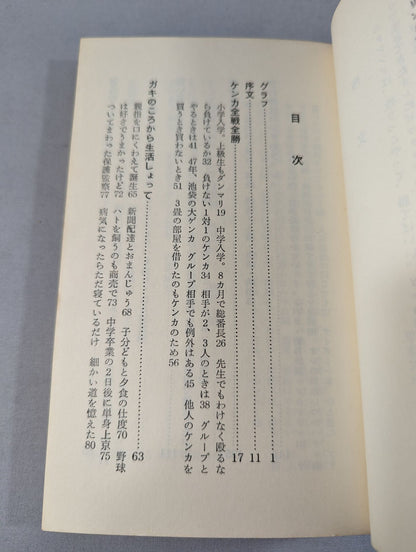 目次
グラフ 1
序文 11
ケンカ全戦全勝 17
小学入学。上級生もダンマリ19 中学入学。8ヵ月で総番長26 先生でもわけなく殴るな
ら負けているか32 負けない1対1のケンカ34 相手が2、3人のときは38 グループと
やるときは41 47年、池袋の大ゲンカ グループ相手でも例外はある45 他人のケンカを
買うとき買わないとき51 3畳の部屋を借りたのもケンカのため56
ガキのころから生活しょって 63
親指を口にくわえて誕生65 新聞配達とおまんじゅう68 子分どもと夕食の仕度70 野球
は好きでうまかったけど72 ハトを飼うのも商売で73 中学卒業の2日後に単身上京75
ついてまわった保護監察77 病気になったらただ寝ているだけ 細かい道を憶えた80